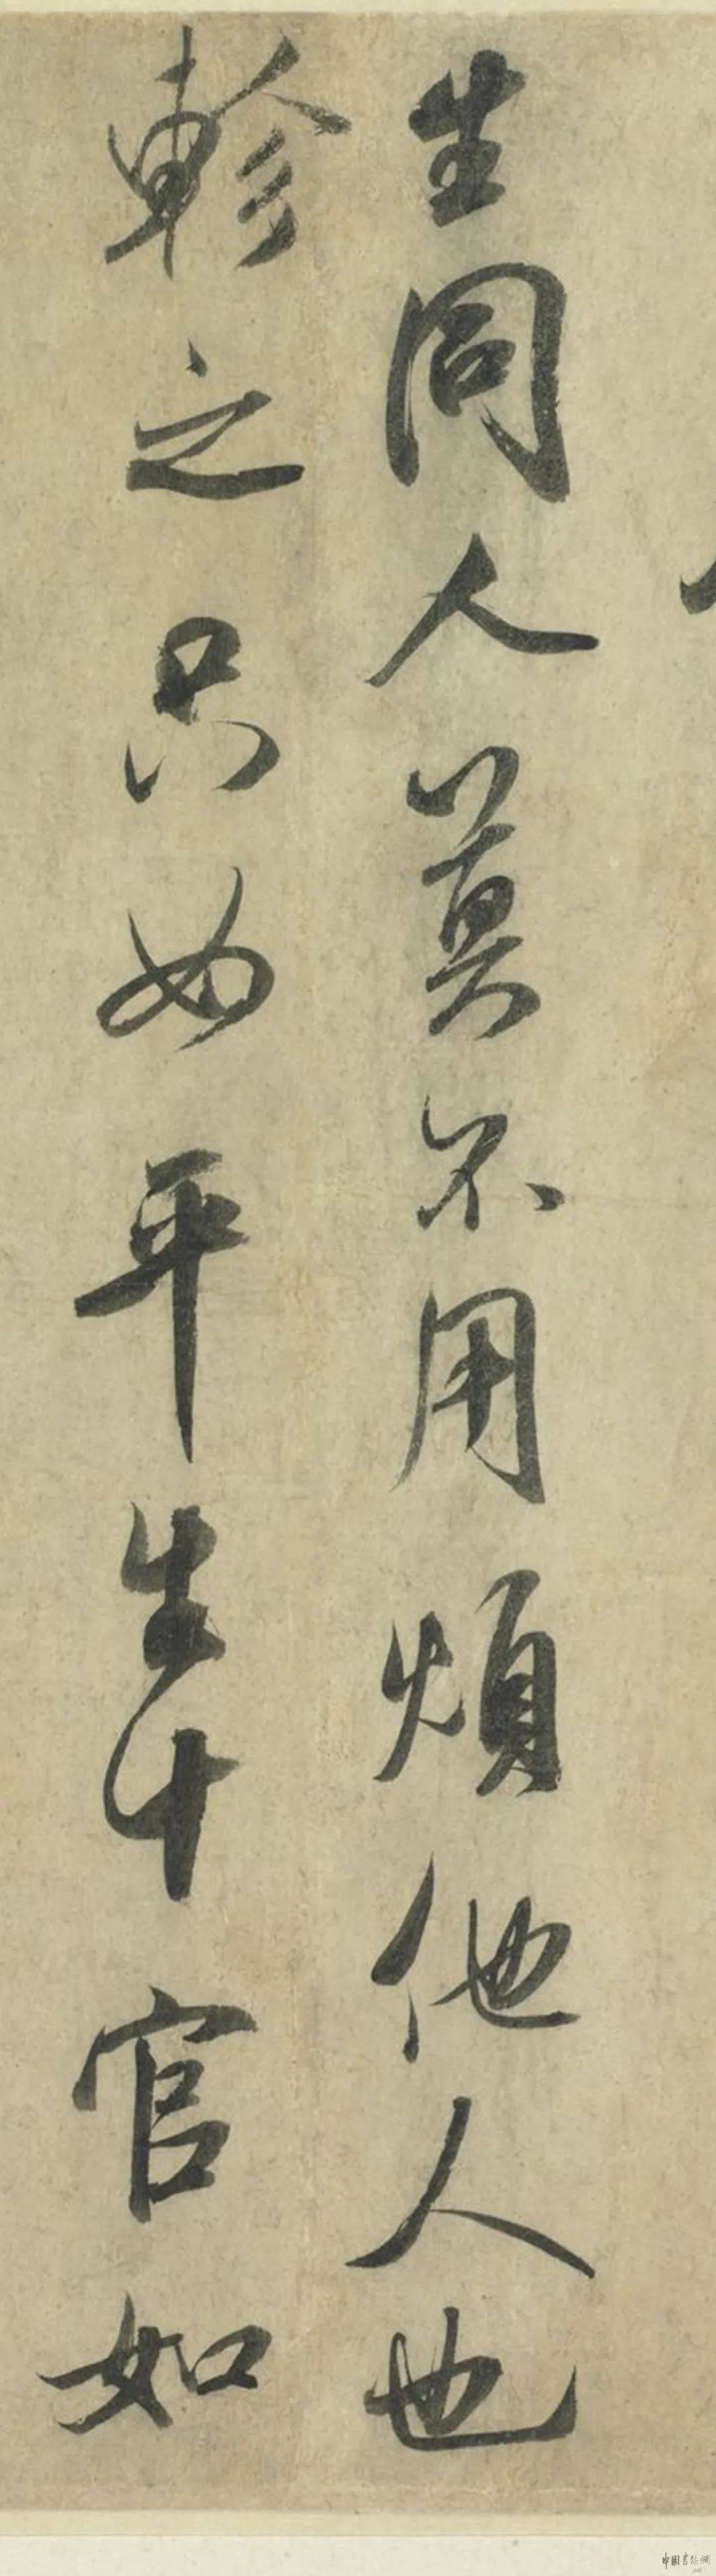 生同人莫不用煩他人也
軫之只如平生十官如
中國書法網